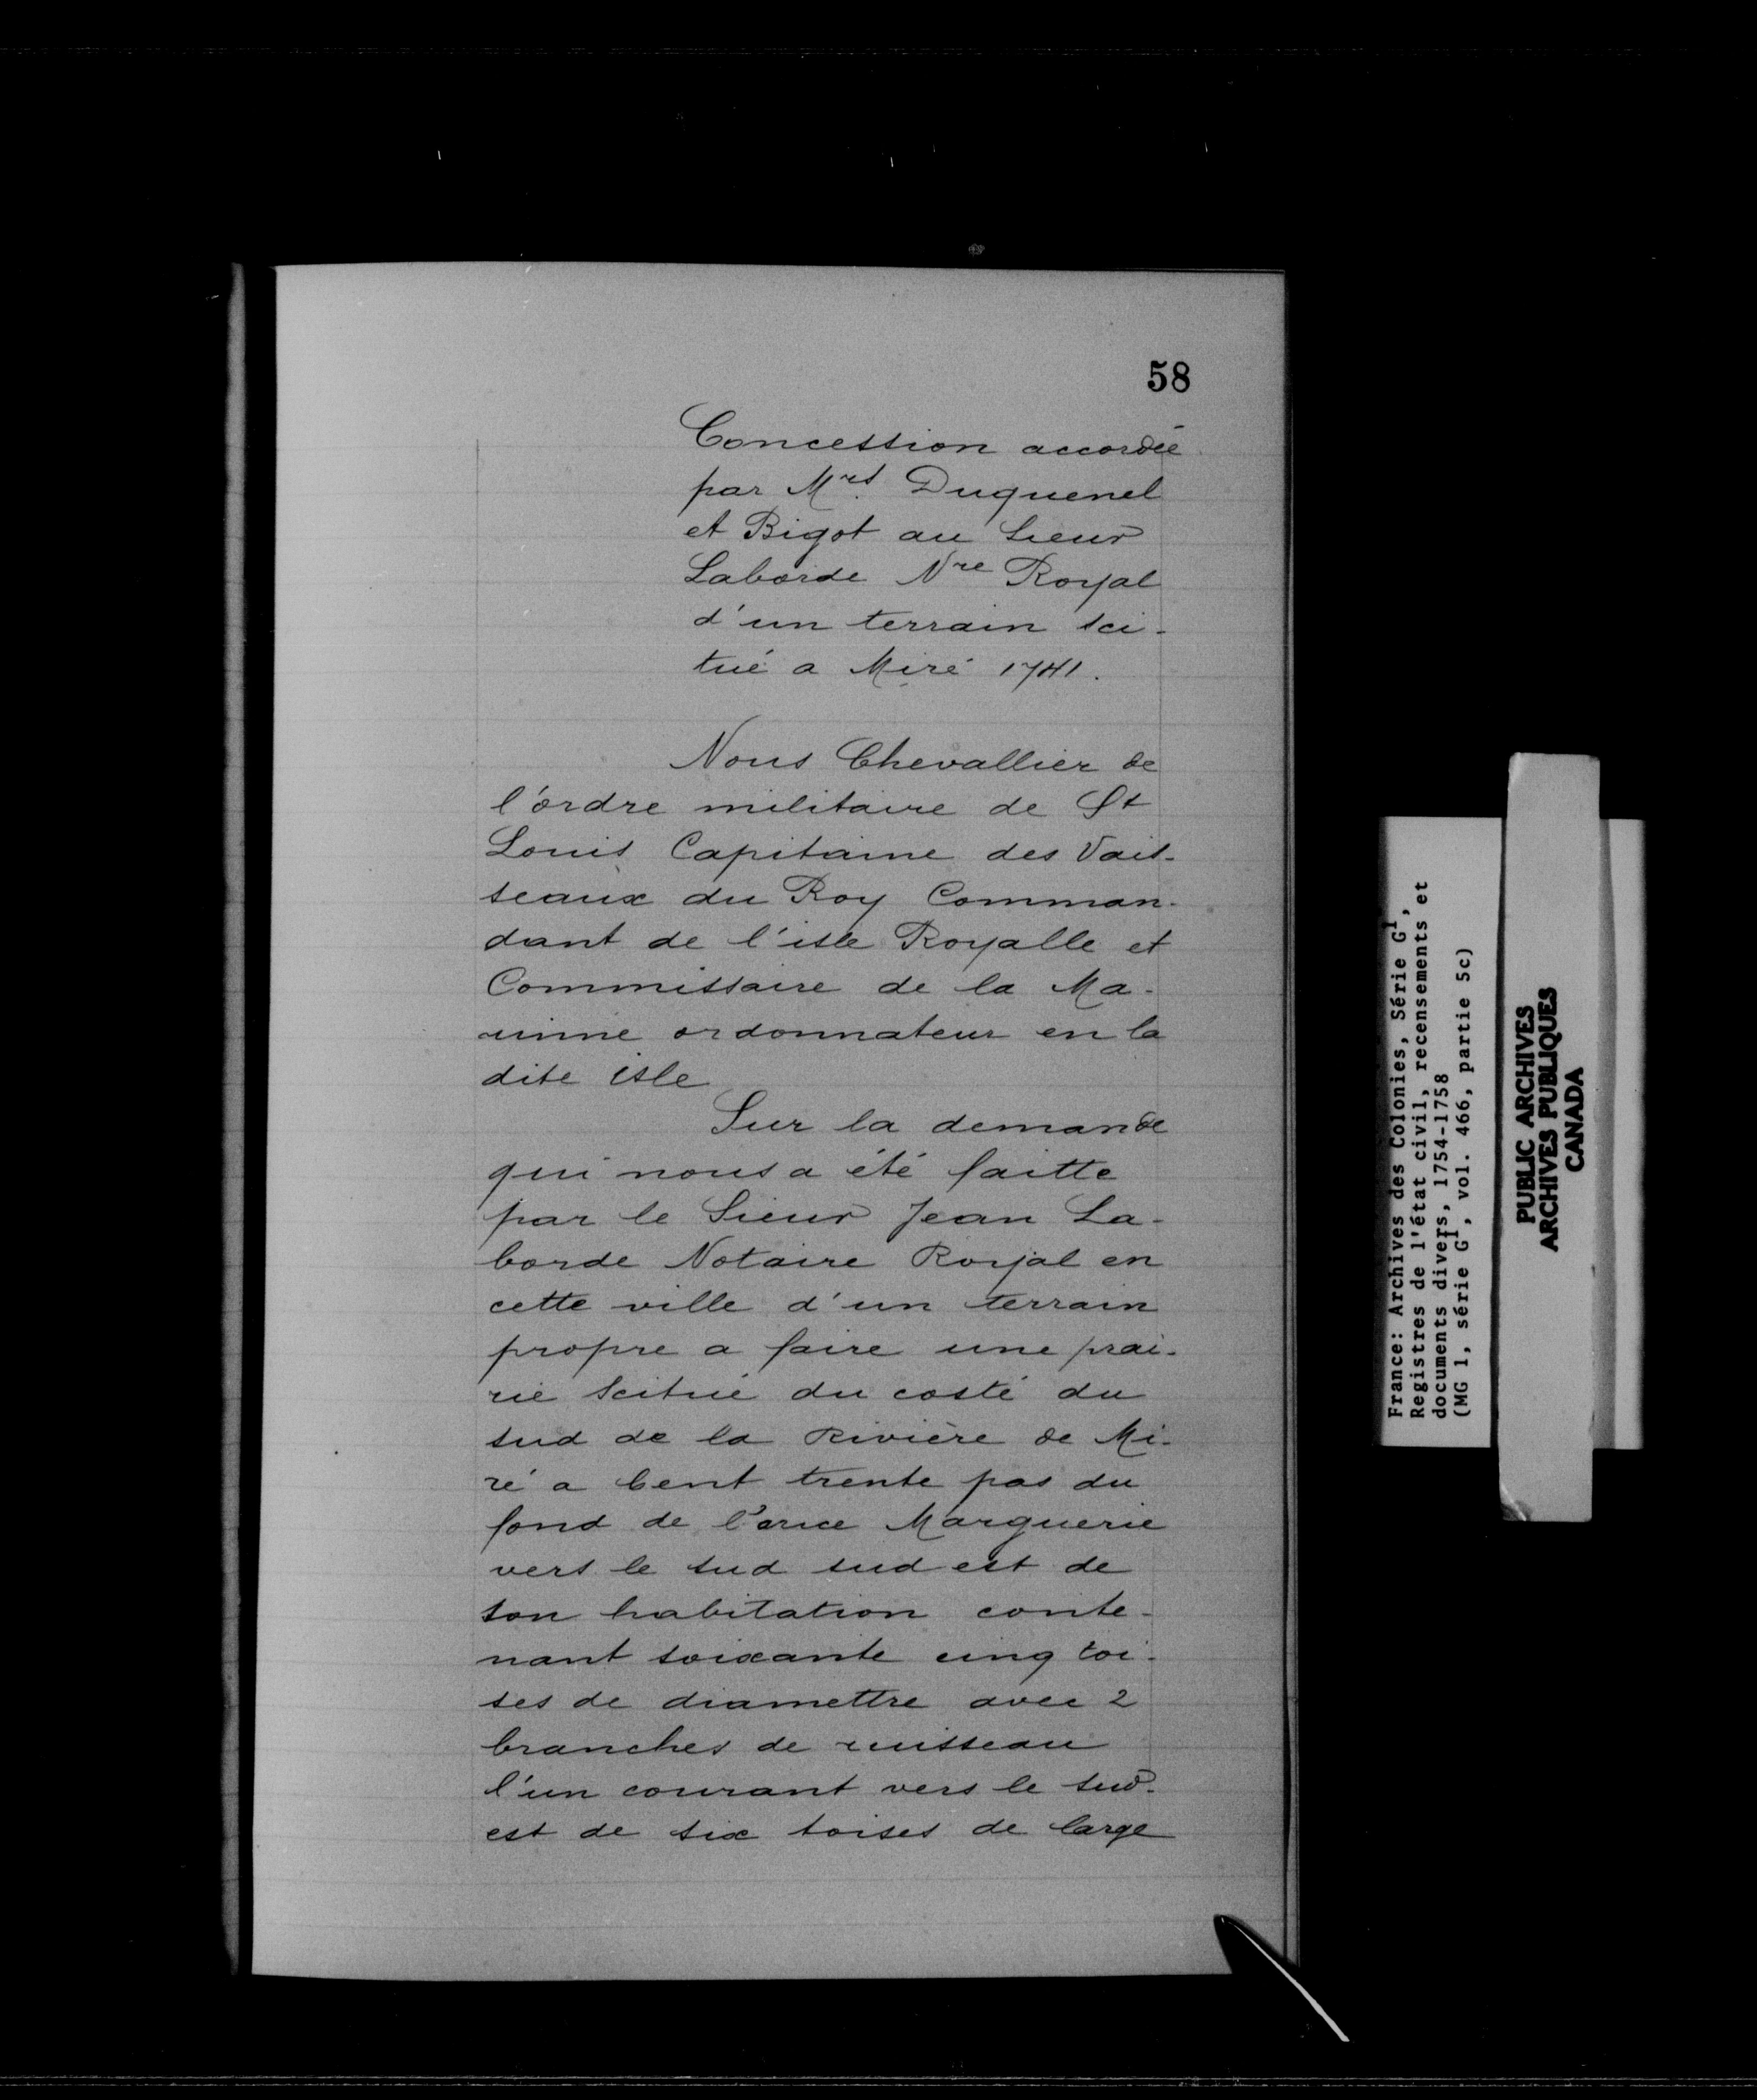 58
Concession accordée
par Mrs Duquenel
et Bigot au Sieur
Laborde Nre Royal
d'un terrain sci-
tué a Miré 1741.
Nous Chevallier de
l'ordre militaire de St
Louis Capitaine des Vais-
seaux du Roy Comman-
dant de l'isle Royalle et
Commissaire de la Ma-
rinne ordonnateur en la
dite isle
Sur la demande
qui nous a été faitte
par le Sieur Jean La-
borde Notaire Royal en
cette ville d'un terrain
propre a faire une prai-
rie scitué du costé du
sud de la Rivière de Mi-
ré a Cent trente pas du
fond de l'ance Marguerie
vers le sud sud est de
son habitation conte-
nant soixante cinq toi-
ses de diamettre avec 2
branches de ruisseau
l'un courant vers le sud-
est de six toises de large
France: Archives des Colonies, Série G1,
Registres de l'état civil, recensements et
documents divers, 1754-1758
(MG 1, série G1, vol. 466, partie 5c)
PUBLIC ARCHIVES
ARCHIVES PUBLIQUES
CANADA